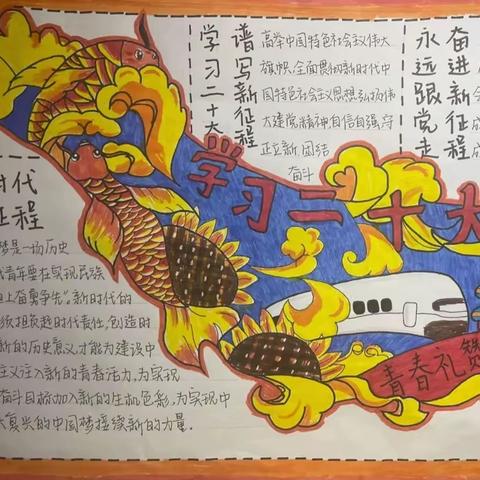 学习二十大
谱写新征程
高举中国特色社会主义伟大
旗帜,全面贯彻新时代中
国特色社会主义思想,弘扬伟
大建党精神,自信自强,守
正立新,团结
奋斗
永远跟党走
奋进新征程
学习二十大
时代
征程
梦是一场历史
代青年要在实现民族
上奋勇争先"。新时代的
须担负起时代责任,创造时
新的历史意义,才能为建设中
主义注入新的青春活力,为实现
奋斗目标加入新的生机色彩,为实现中
大复兴的中国梦接续新的力量.
青春礼赞